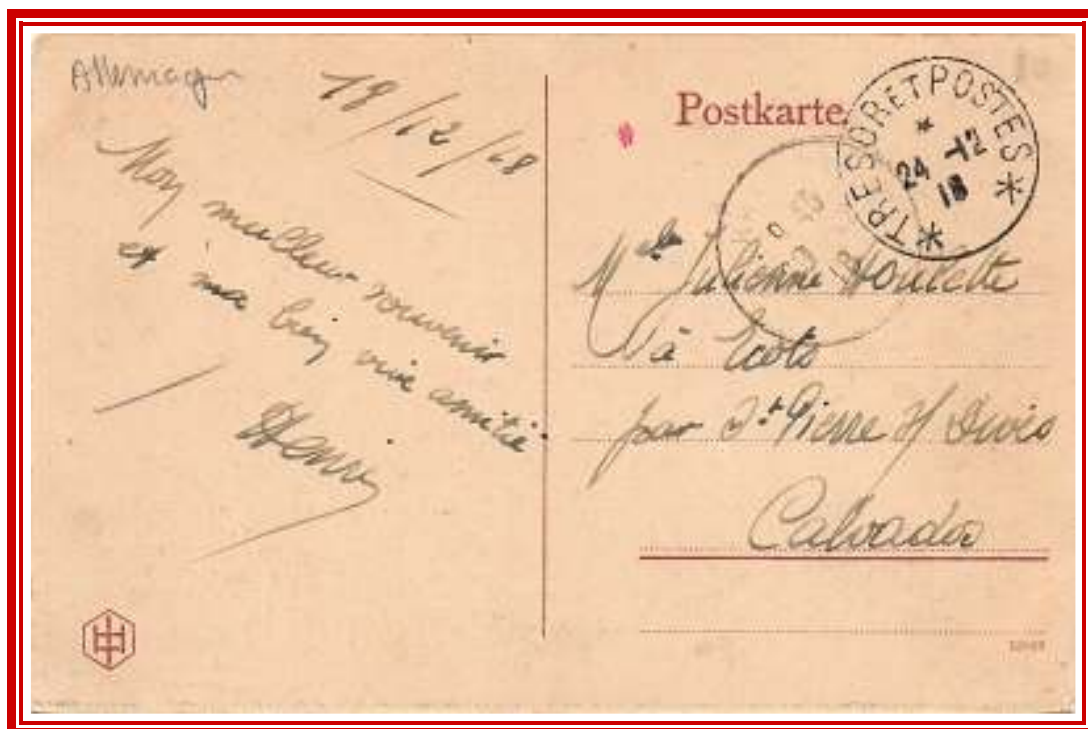 Allemagne
19/12/18
Mon meilleur souvenir
et ma bien vive amitié
Henri
Postkarte.
* TRÉSOR ET POSTES *
*
24 -12
18
Mlle Julienne Houlette
à
par St Pierre s/ Dives
Calvados